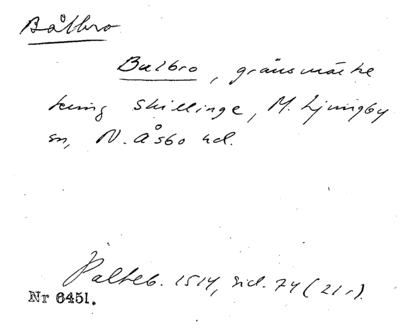 Bålbro
Balbro, gränsmärke
kring Skillinge, M. Ljungby
sn, N. Åsbo hd.
Palteb. 1514, sid. 74 (21 r).
Nr 6451.